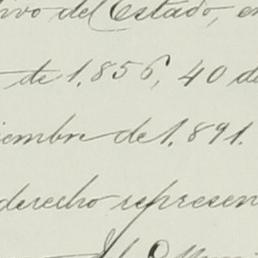 ivo del Estado, en
de 1.856, 40 de
iembre de 1.891.
derecho represen